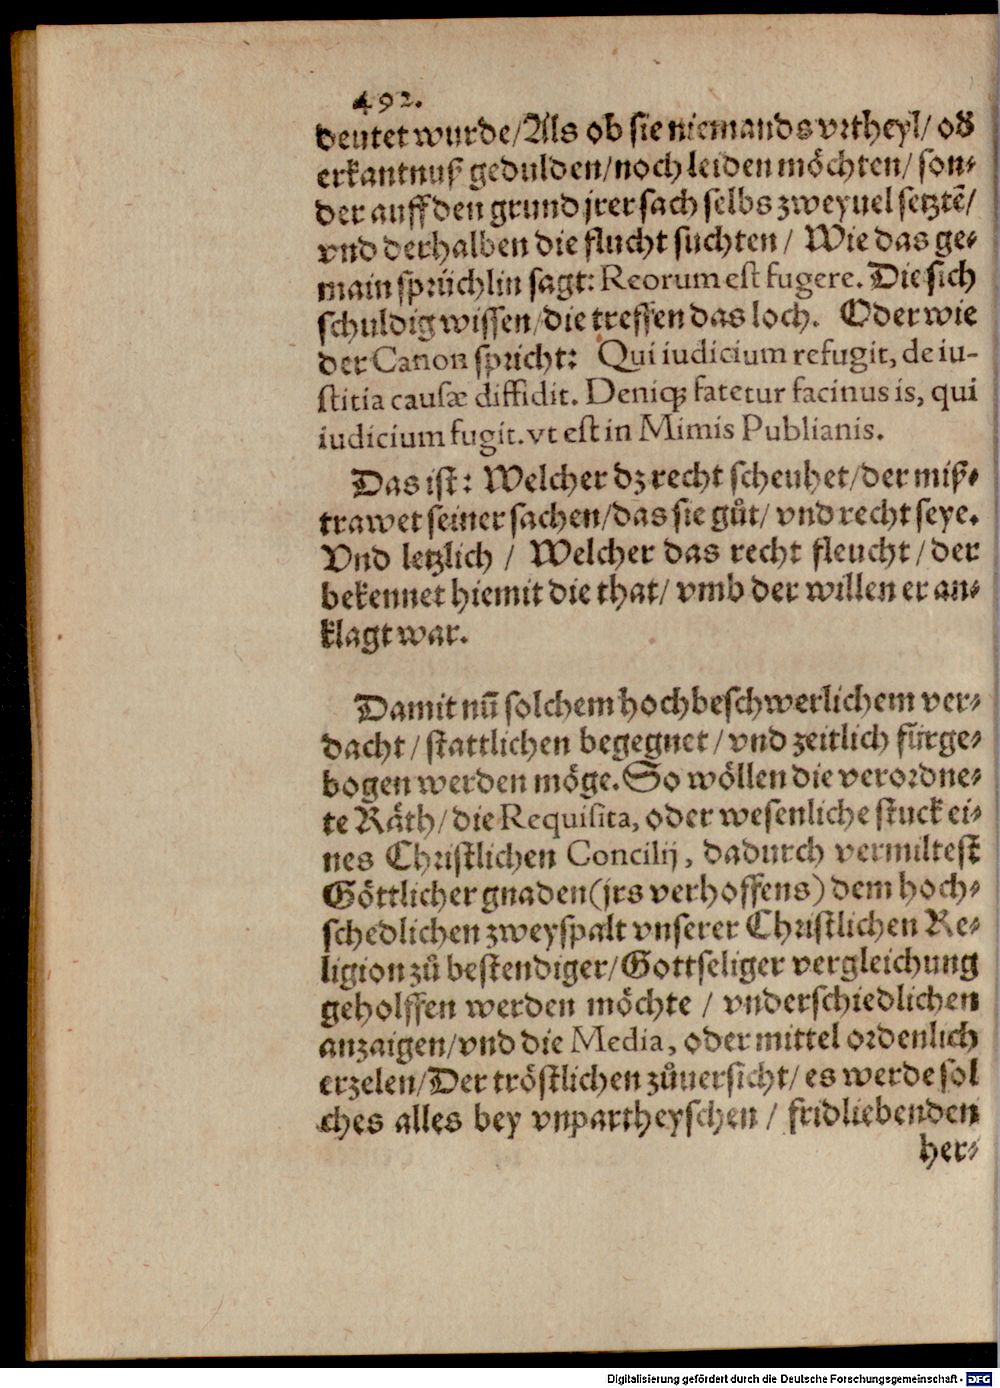 492.
deutet wurde/Als ob sie niemands vrtheyl/ od̕
erkantnuß gedulden/noch leiden möchten/ son⸗
der auff den grund jrer sach selbs zweyuel setztē/
vnd derhalben die flucht suchten / Wie das ge⸗
main sprüchlin sagt: Reorum est fugere. Die sich
schuldig wissen/die treffen das loch. Oder wie
der Canon spricht: Qui iudicium refugit, de iu-
stitia causæ diffidit. Deniq; fatetur facinus is, qui
iudicium fugit. vt est in Mimis Publianis.
Das ist: Welcher dz recht scheuhet/der miß⸗
trawet seiner sachen/das sie gůt/ vnd recht seye.
Vnd letzlich / Welcher das recht fleucht/der
bekennet hiemit die that/ vmb der willen er an⸗
klagt war.
Damit nū solchem hochbeschwerlichem ver⸗
dacht/stattlichen begegnet/vnd zeitlich fürge⸗
bogen werden möge. So wöllen die verordne⸗
te Räth/die Requisita, oder wesenliche stuck ei⸗
nes Christlichen Concilij, dadurch vermiltest
Göttlicher gnaden(jrs verhoffens) dem hoch⸗
schedlichen zweyspalt vnserer Christlichen Re⸗
ligion zů bestendiger/Gottseliger vergleichung
geholffen werden möchte / vnderschiedlichen
anzaigen/vnd die Media, oder mittel ordenlich
erzelen/Der tröstlichen zůuersicht/ es werde sol
ches alles bey vnpartheyschen / fridliebenden
her⸗
Digitalisierung gefördert durch die Deutsche Forschungsgemeinschaft - DFG